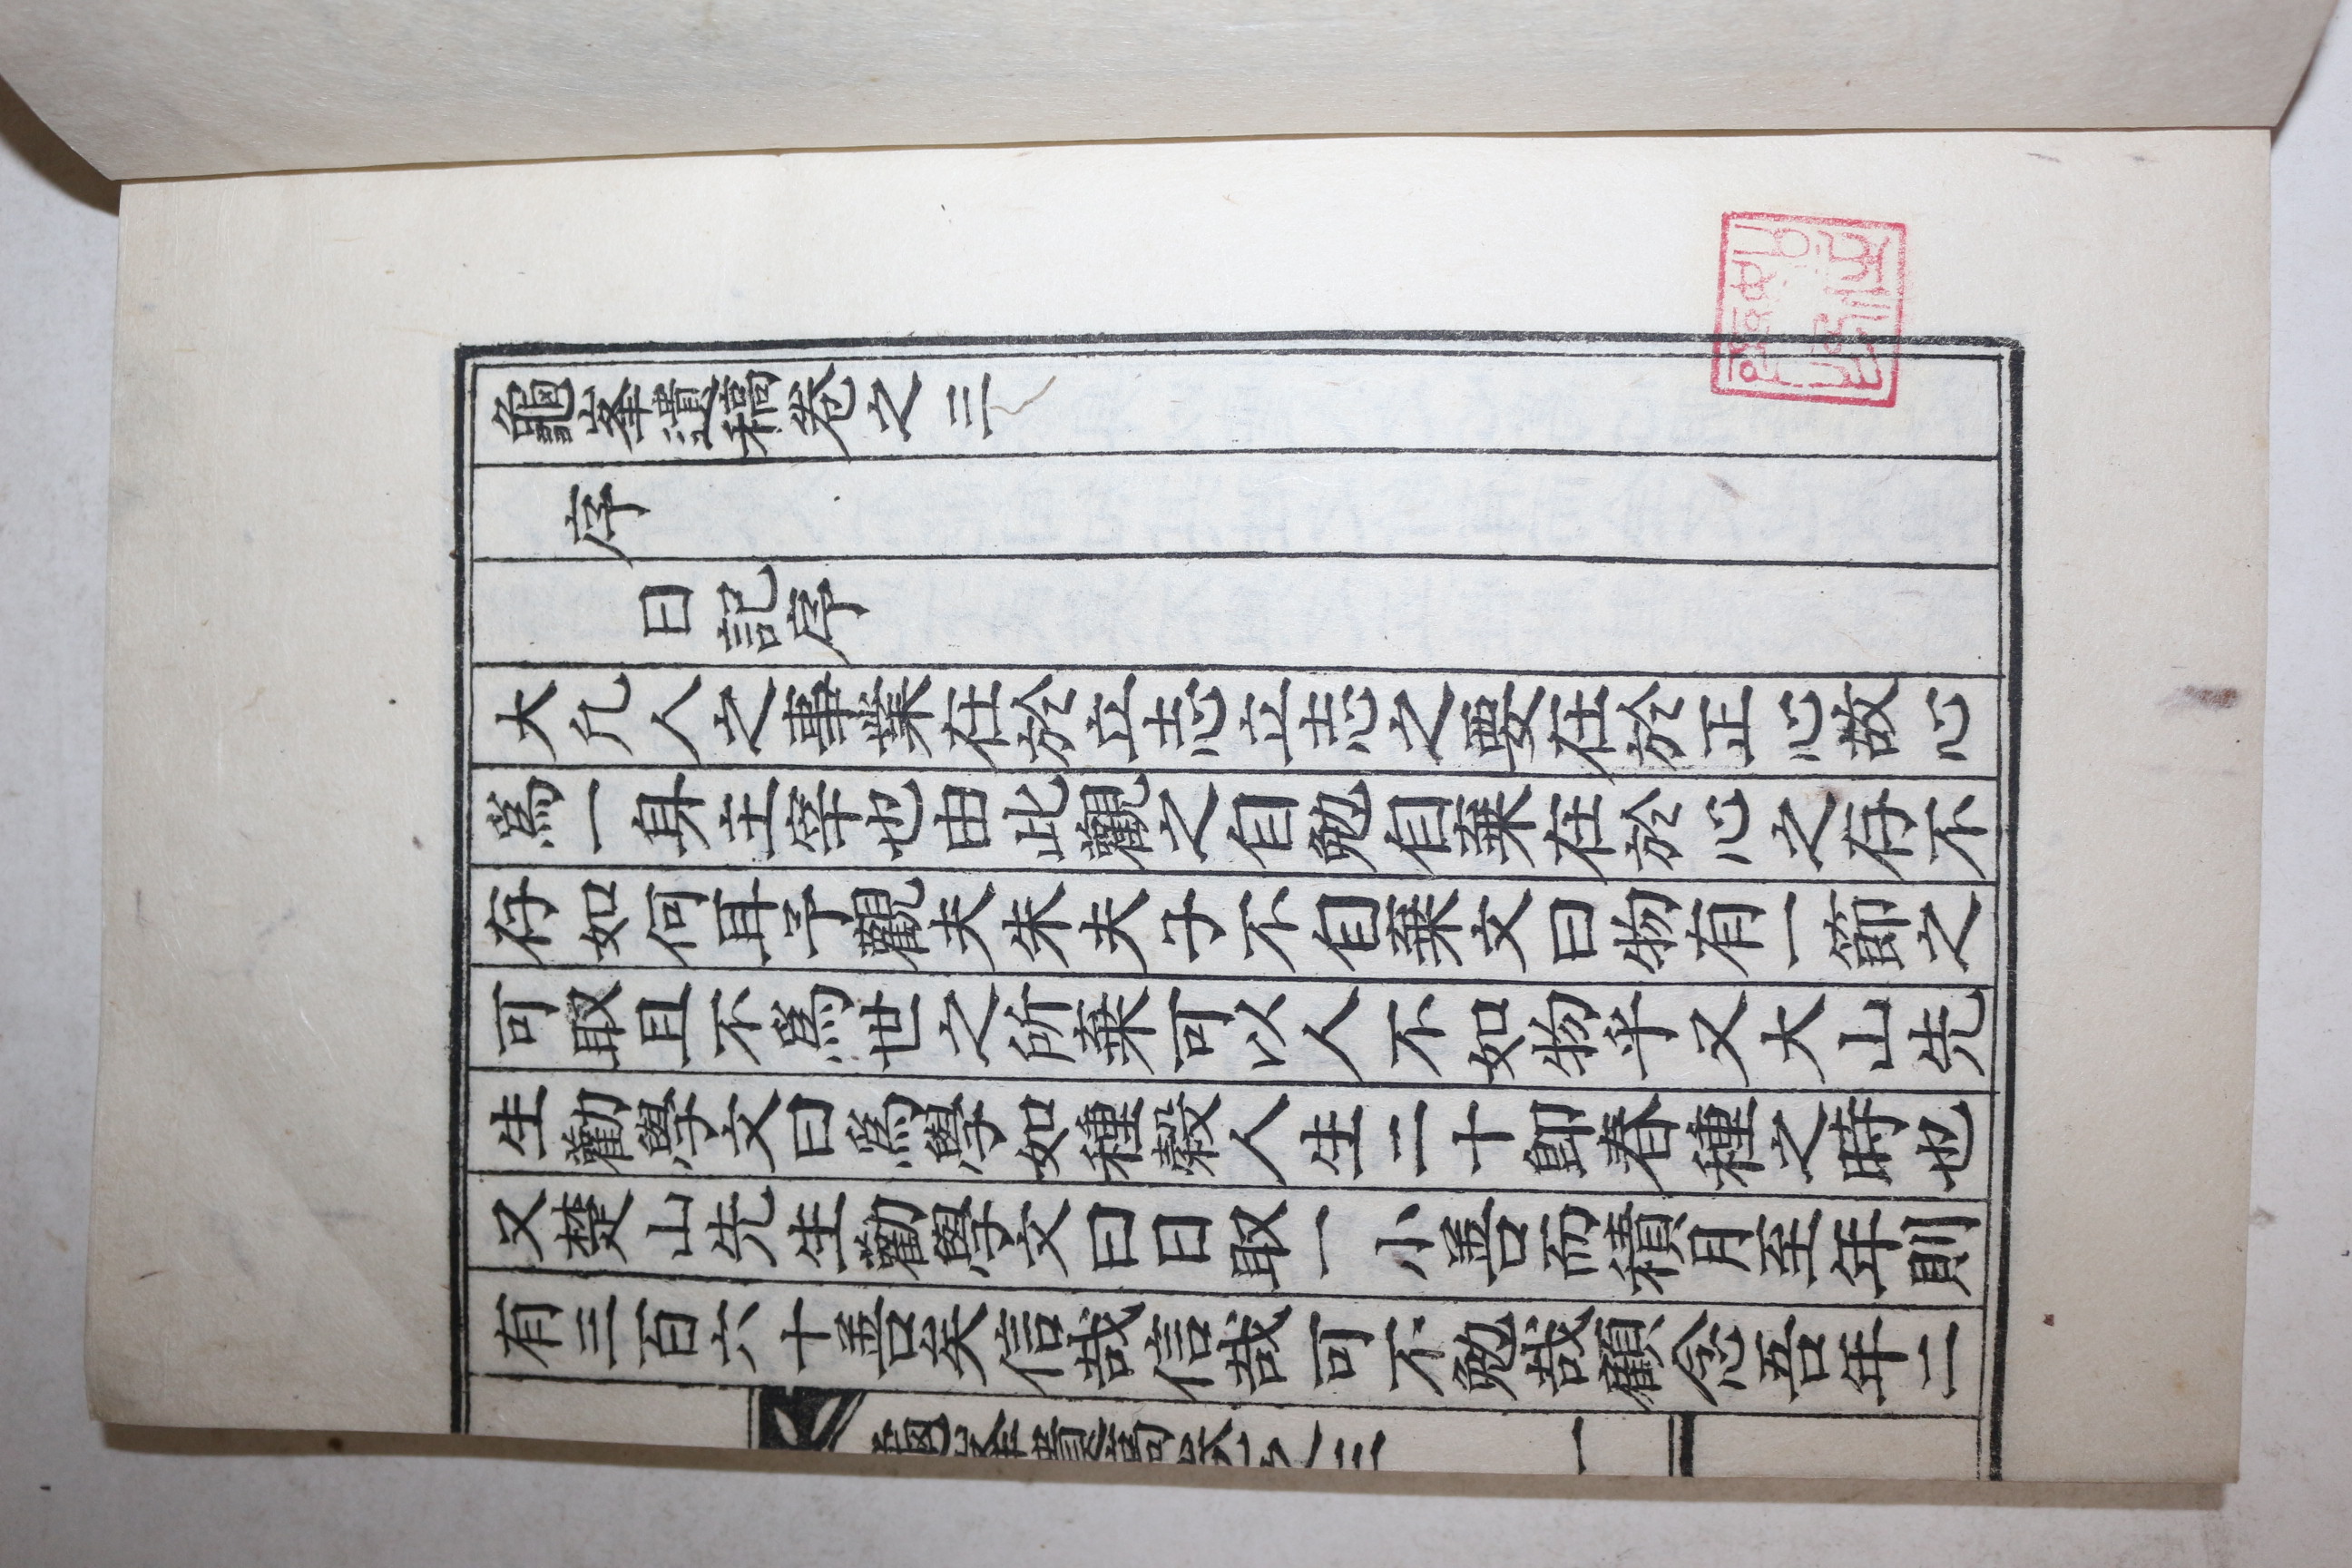 龜峯遺稿卷之三
序
日記序
大凡人之事業在於立志立志之要在於正心故心
爲一身主宰也由此觀之自勉自棄在於心之存不
存如何耳予觀夫朱夫子不自棄文曰物有一節之
可取且不爲世之所棄可以人不如物乎又大山先
生勸學文曰爲學如種穀人生二十卽春種之時也
又楚山先生勸學文曰日取一小善而積月至年則
有三百六十善矣信哉信哉可不勉哉顧念吾年二
龜峯遺稿卷之三 一